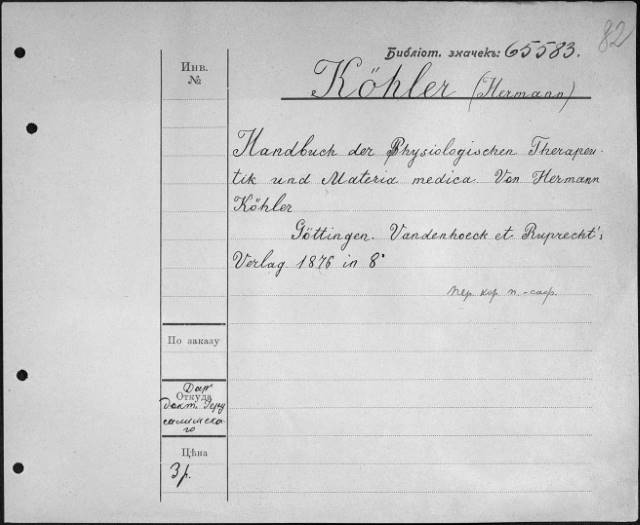 82
Библіот. значекъ: 65583.
Инв.
№
Köhler (Hermann)
Handbuch der Physiologischen Therapeu-
tik und Materia medica. Von Hermann
Köhler
Göttingen. Vandenhoeck et Ruprecht's
Verlag 1876 in 8°
пер. кор п. -саф.
По заказу
Даръ
Откуда
докт. Іеру
салимска
го
Цѣна
3 р.